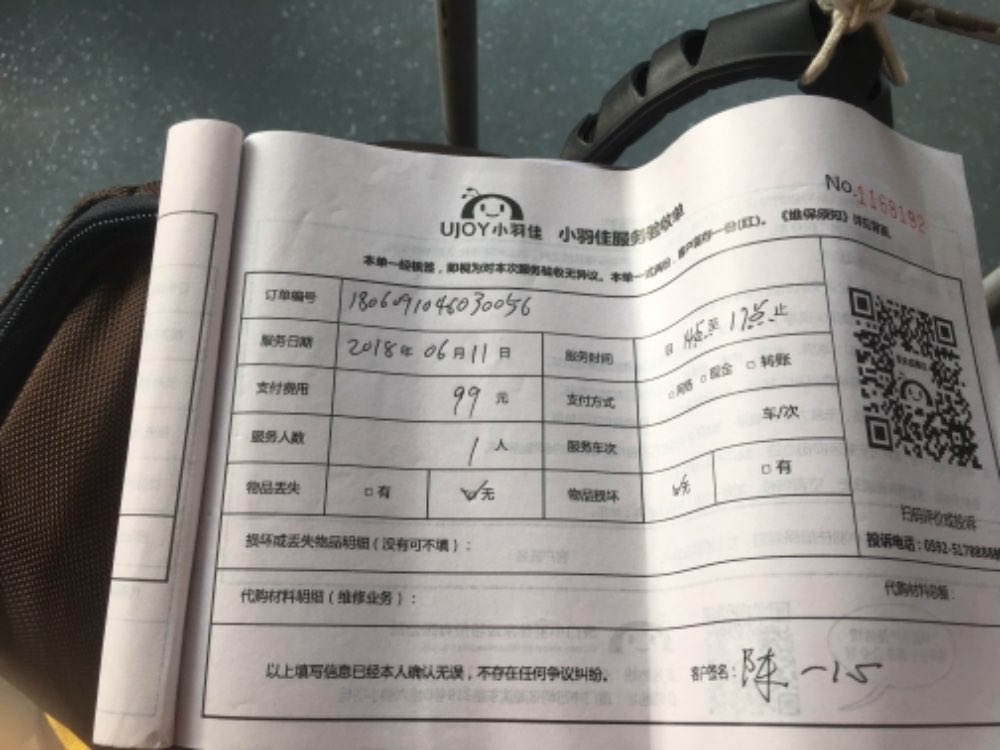 No.1168192
UJOY小羽佳 小羽佳服务验收单
本单一经铁签，即视为对本次服务验收无异议。本单一式两份，客户留存一份(红)。《维保须知》详见背面。
订单编号 1806091046030056
服务日期 2018年06月11日 服务时间 自 14点至17点止
支付费用 99元 支付方式 □网络 □现金 □转账
服务人数 1人 服务车次 车/次
物品丢失 □有 ☑无 物品损坏 ☑无 □有
扫码评价或投诉
损坏或丢失物品明细（没有可不填）： 投诉电话：0592-5178888
代购材料明细（维修业务）： 代购材料总额：
以上填写信息已经本人确认无误，不存在任何争议纠纷。 客户签名：陈